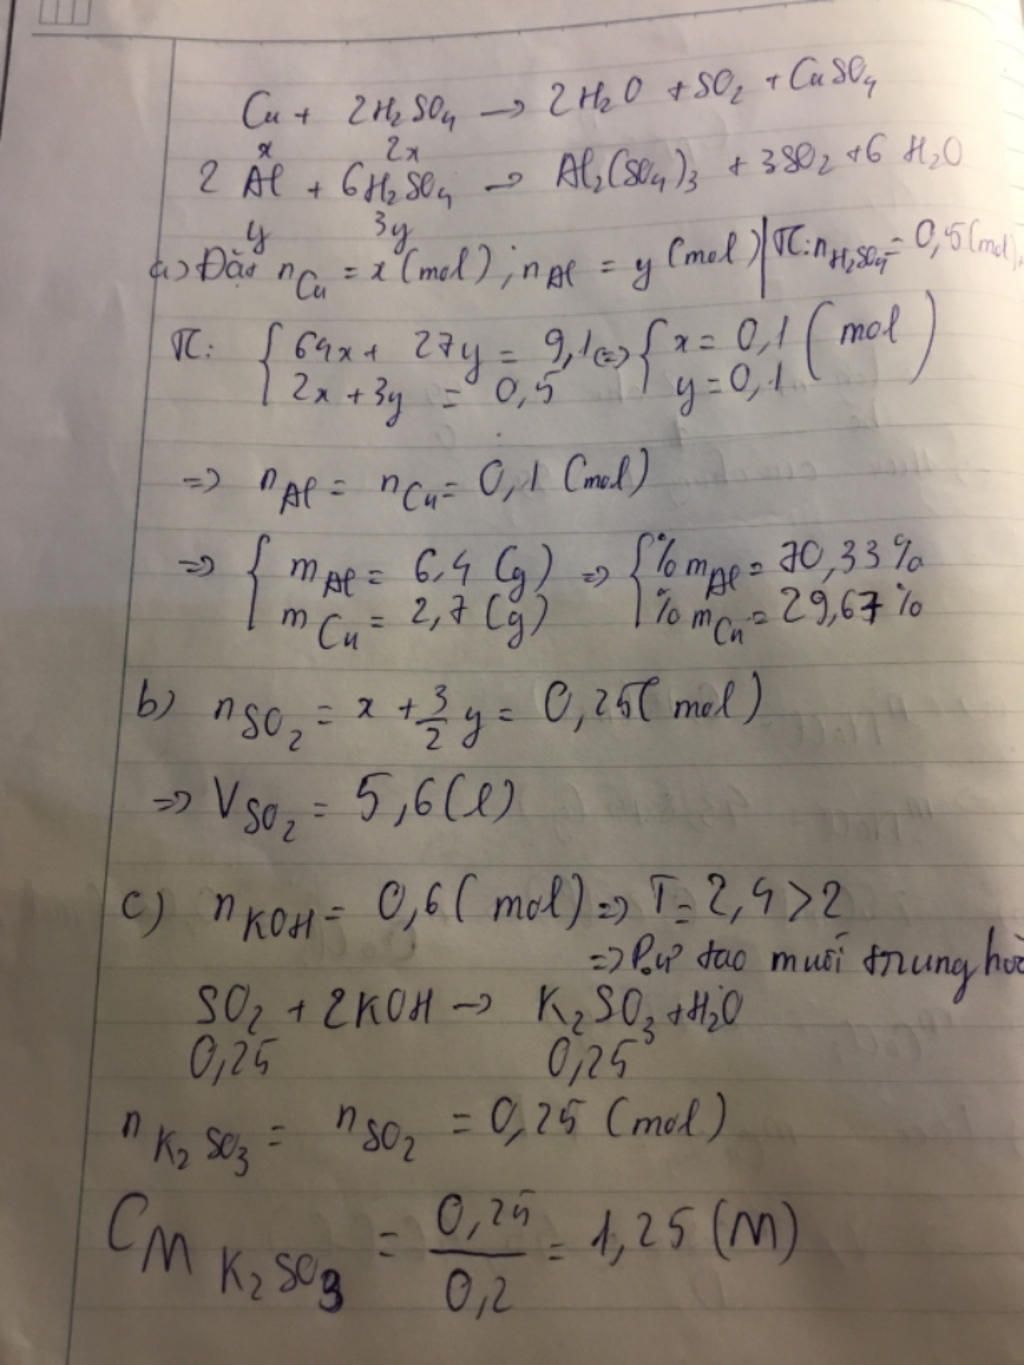 Cu + 2H₂SO₄ → 2H₂O + SO₂ + CuSO₄
x 2x
2 Al + 6H₂SO₄ → Al₂(SO₄)₃ + 3SO₂ + 6 H₂O
y 3y
a) Đặt nCu = x (mol); nAl = y (mol) | TC: nH₂SO₄ = 0,5 (mol).
TC: { 64x + 27y = 9,1 <=> { x = 0,1 (mol)
2x + 3y = 0,5 y = 0,1
=> nAl = nCu = 0,1 (mol)
=> { mAl = 6,4 (g) => { %mAl = 70,33%
mCu = 2,7 (g) %mCu = 29,67%
b) nSO₂ = x + 3/2 y = 0,25 (mol)
=> VSO₂ = 5,6 (l)
c) nKOH = 0,6 (mol) => T = 2,4 > 2
=> P.ư tao muối trung hoà
SO₂ + 2KOH → K₂SO₃ + H₂O
0,25 0,25
nK₂SO₃ = nSO₂ = 0,25 (mol)
CM K₂SO₃ = 0,25/0,2 = 1,25 (M)